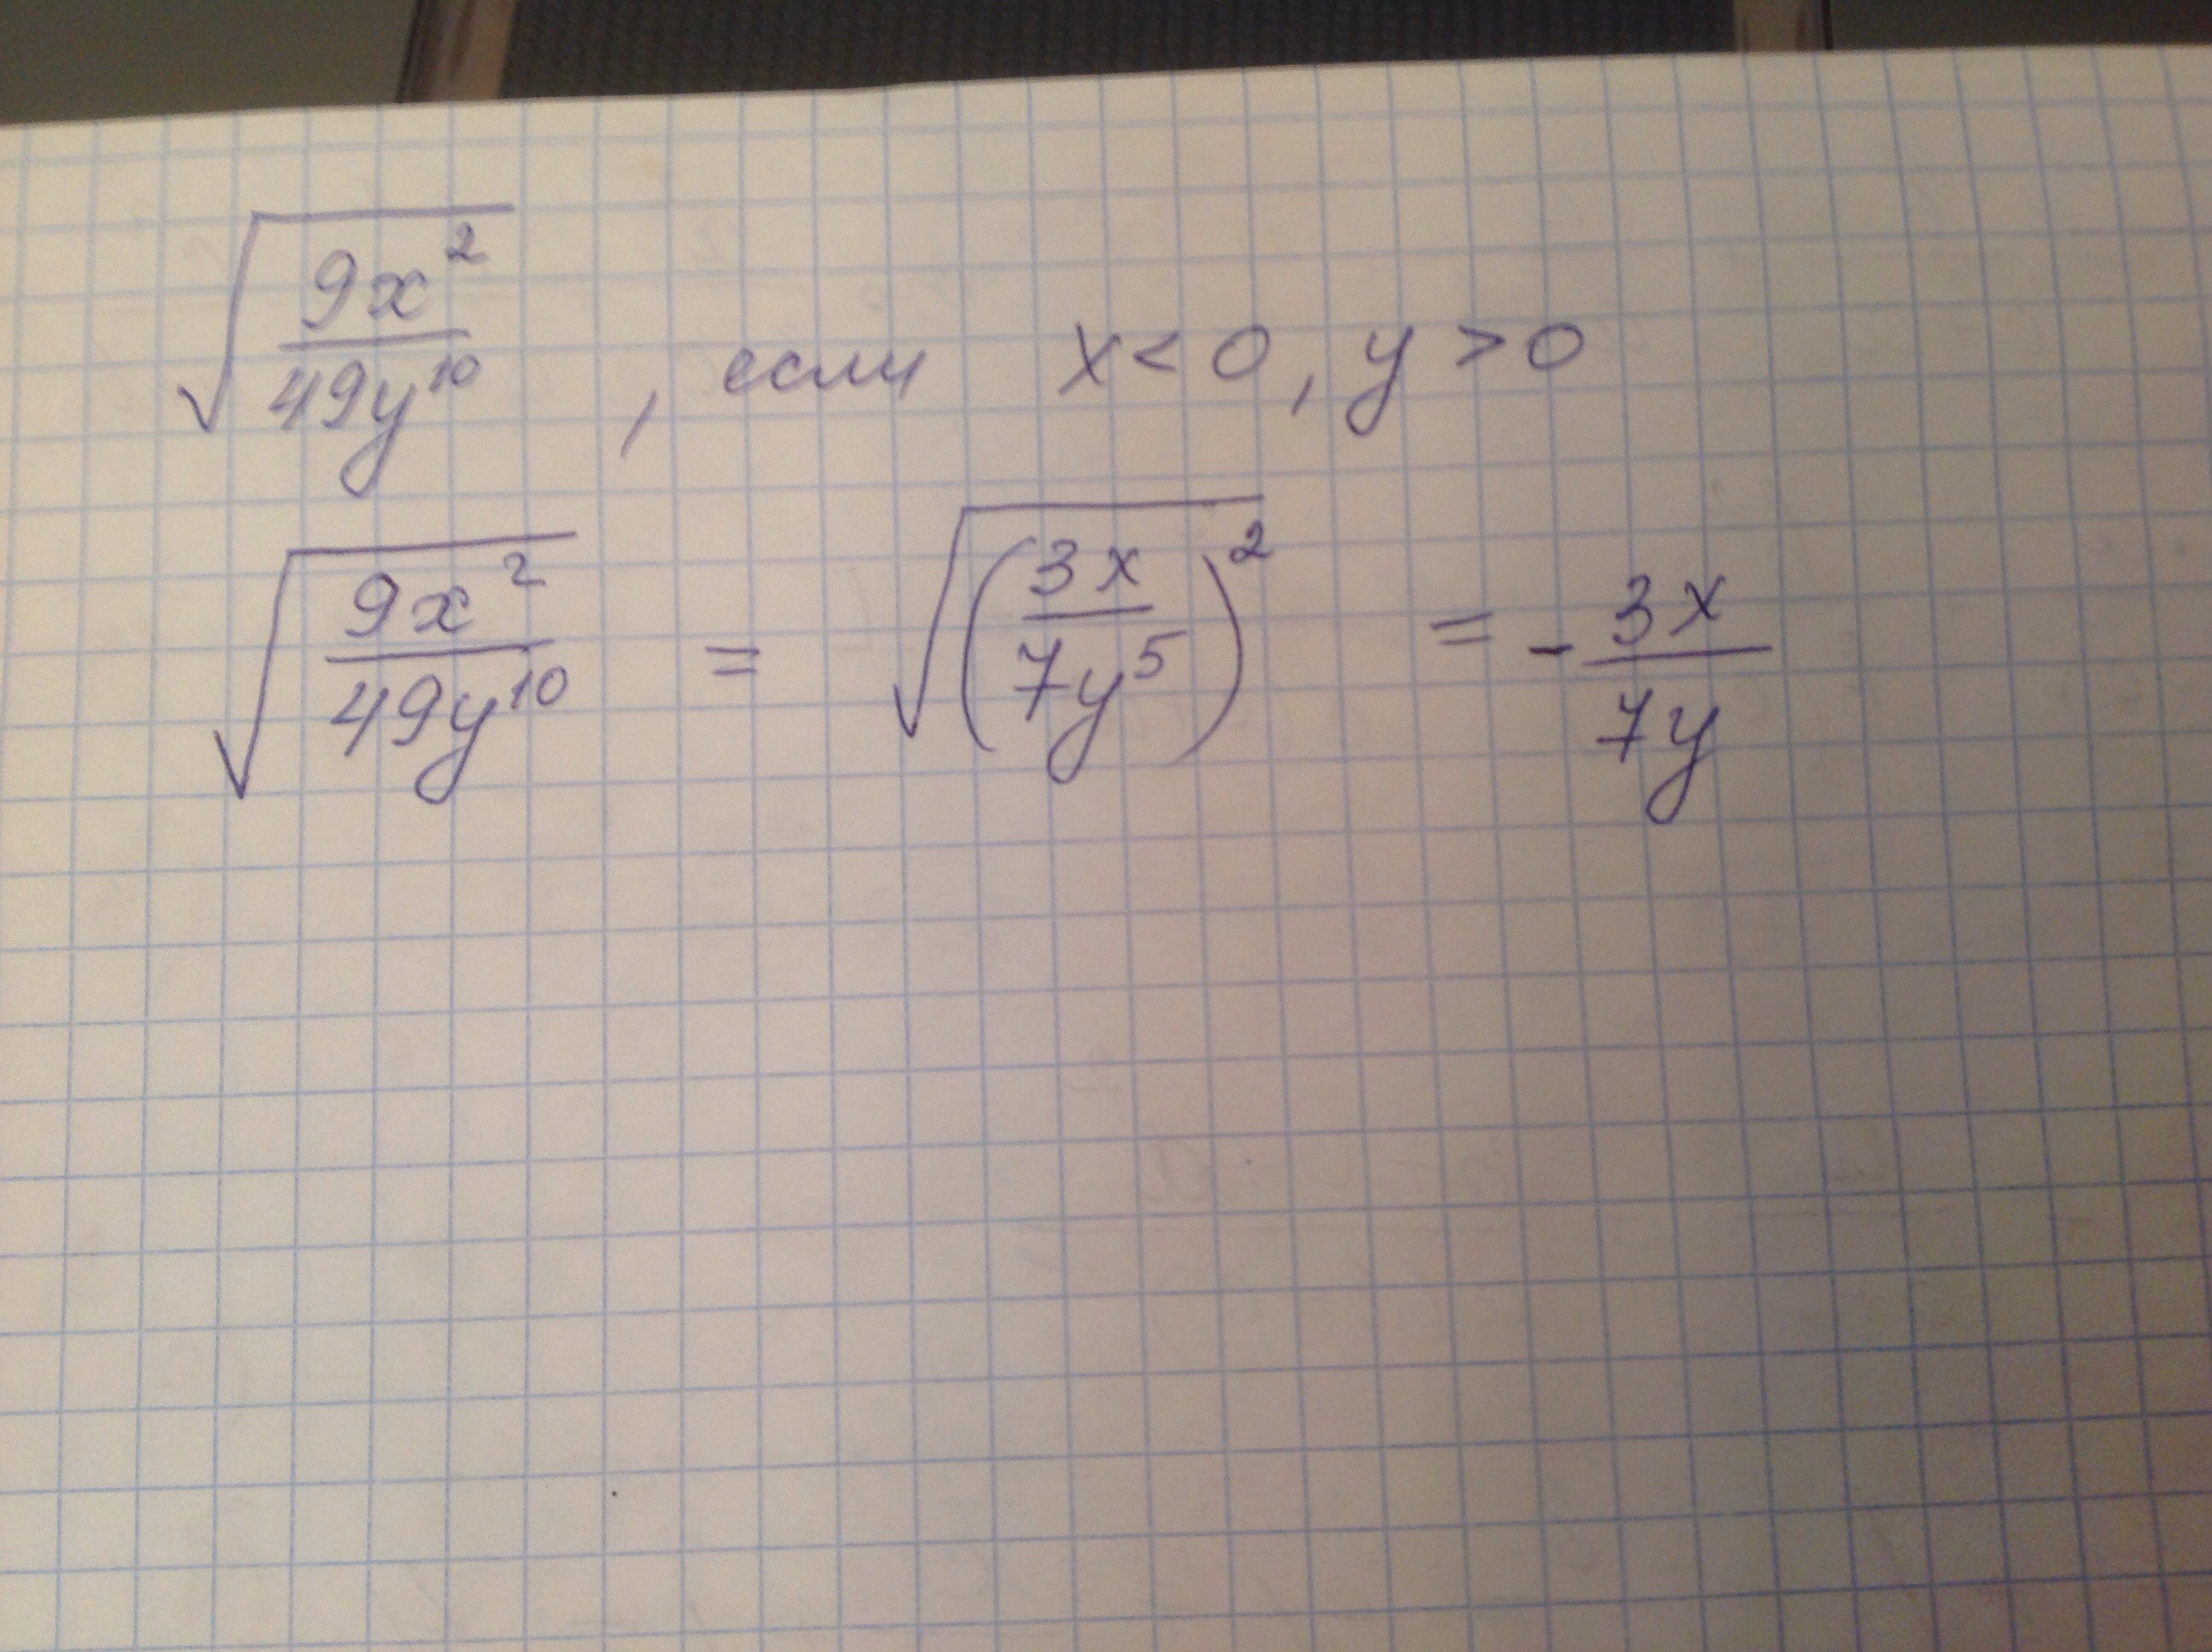 √(9x²/49y¹⁰), если x<0, y>0
√(9x²/49y¹⁰) = √(3x/7y⁵)² = -3x/7y